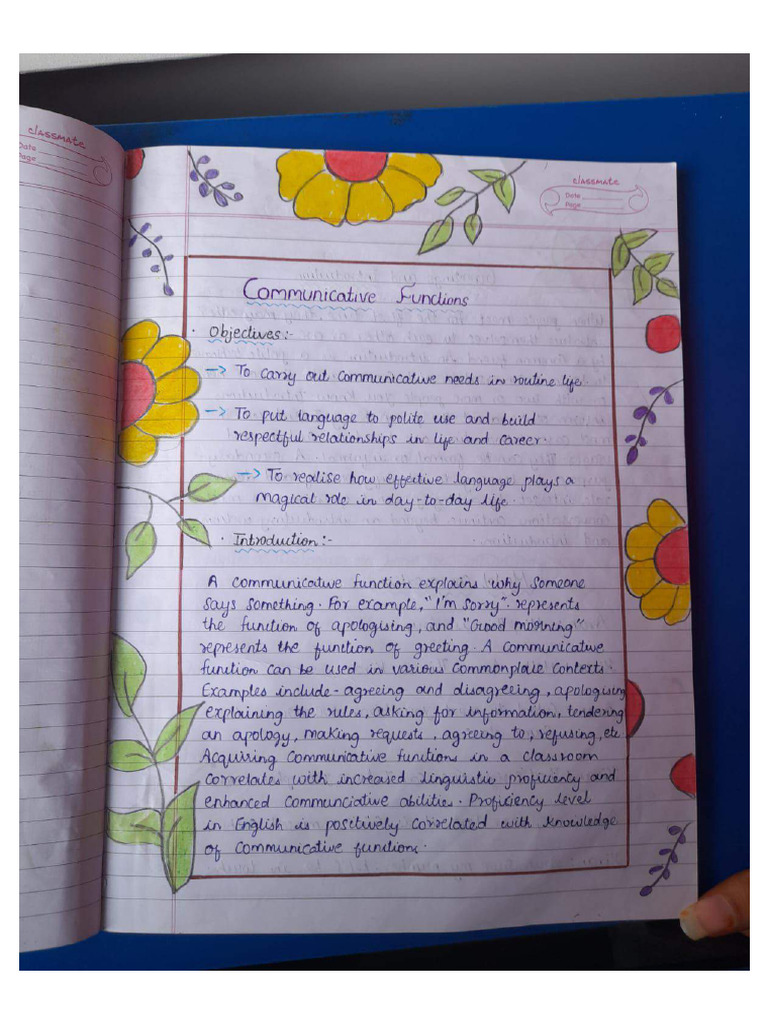 classmate
Date
Page
classmate
Date
Page
Communicative Functions
· Objectives:-
→ To carry out communicative needs in routine life.
→ To put language to polite use and build
respectful relationships in life and career.
→ To realise how effective language plays a
magical role in day-to-day life.
· Introduction:-
A communicative function explains why someone
says something. For example, "I'm sorry". represents
the function of apologising, and "Good morning"
represents the function of greeting. A communicative
function can be used in various commonplace contexts.
Examples include - agreeing and disagreeing, apologising
explaining the rules, asking for information, tendering
an apology, making requests, agreeing to, refusing, etc
Acquiring communicative functions in a classroom
correlates with increased linguistic proficiency and
enhanced communciative abilities. Proficiency level
in English is positively correlated with knowledge
of communicative functions.